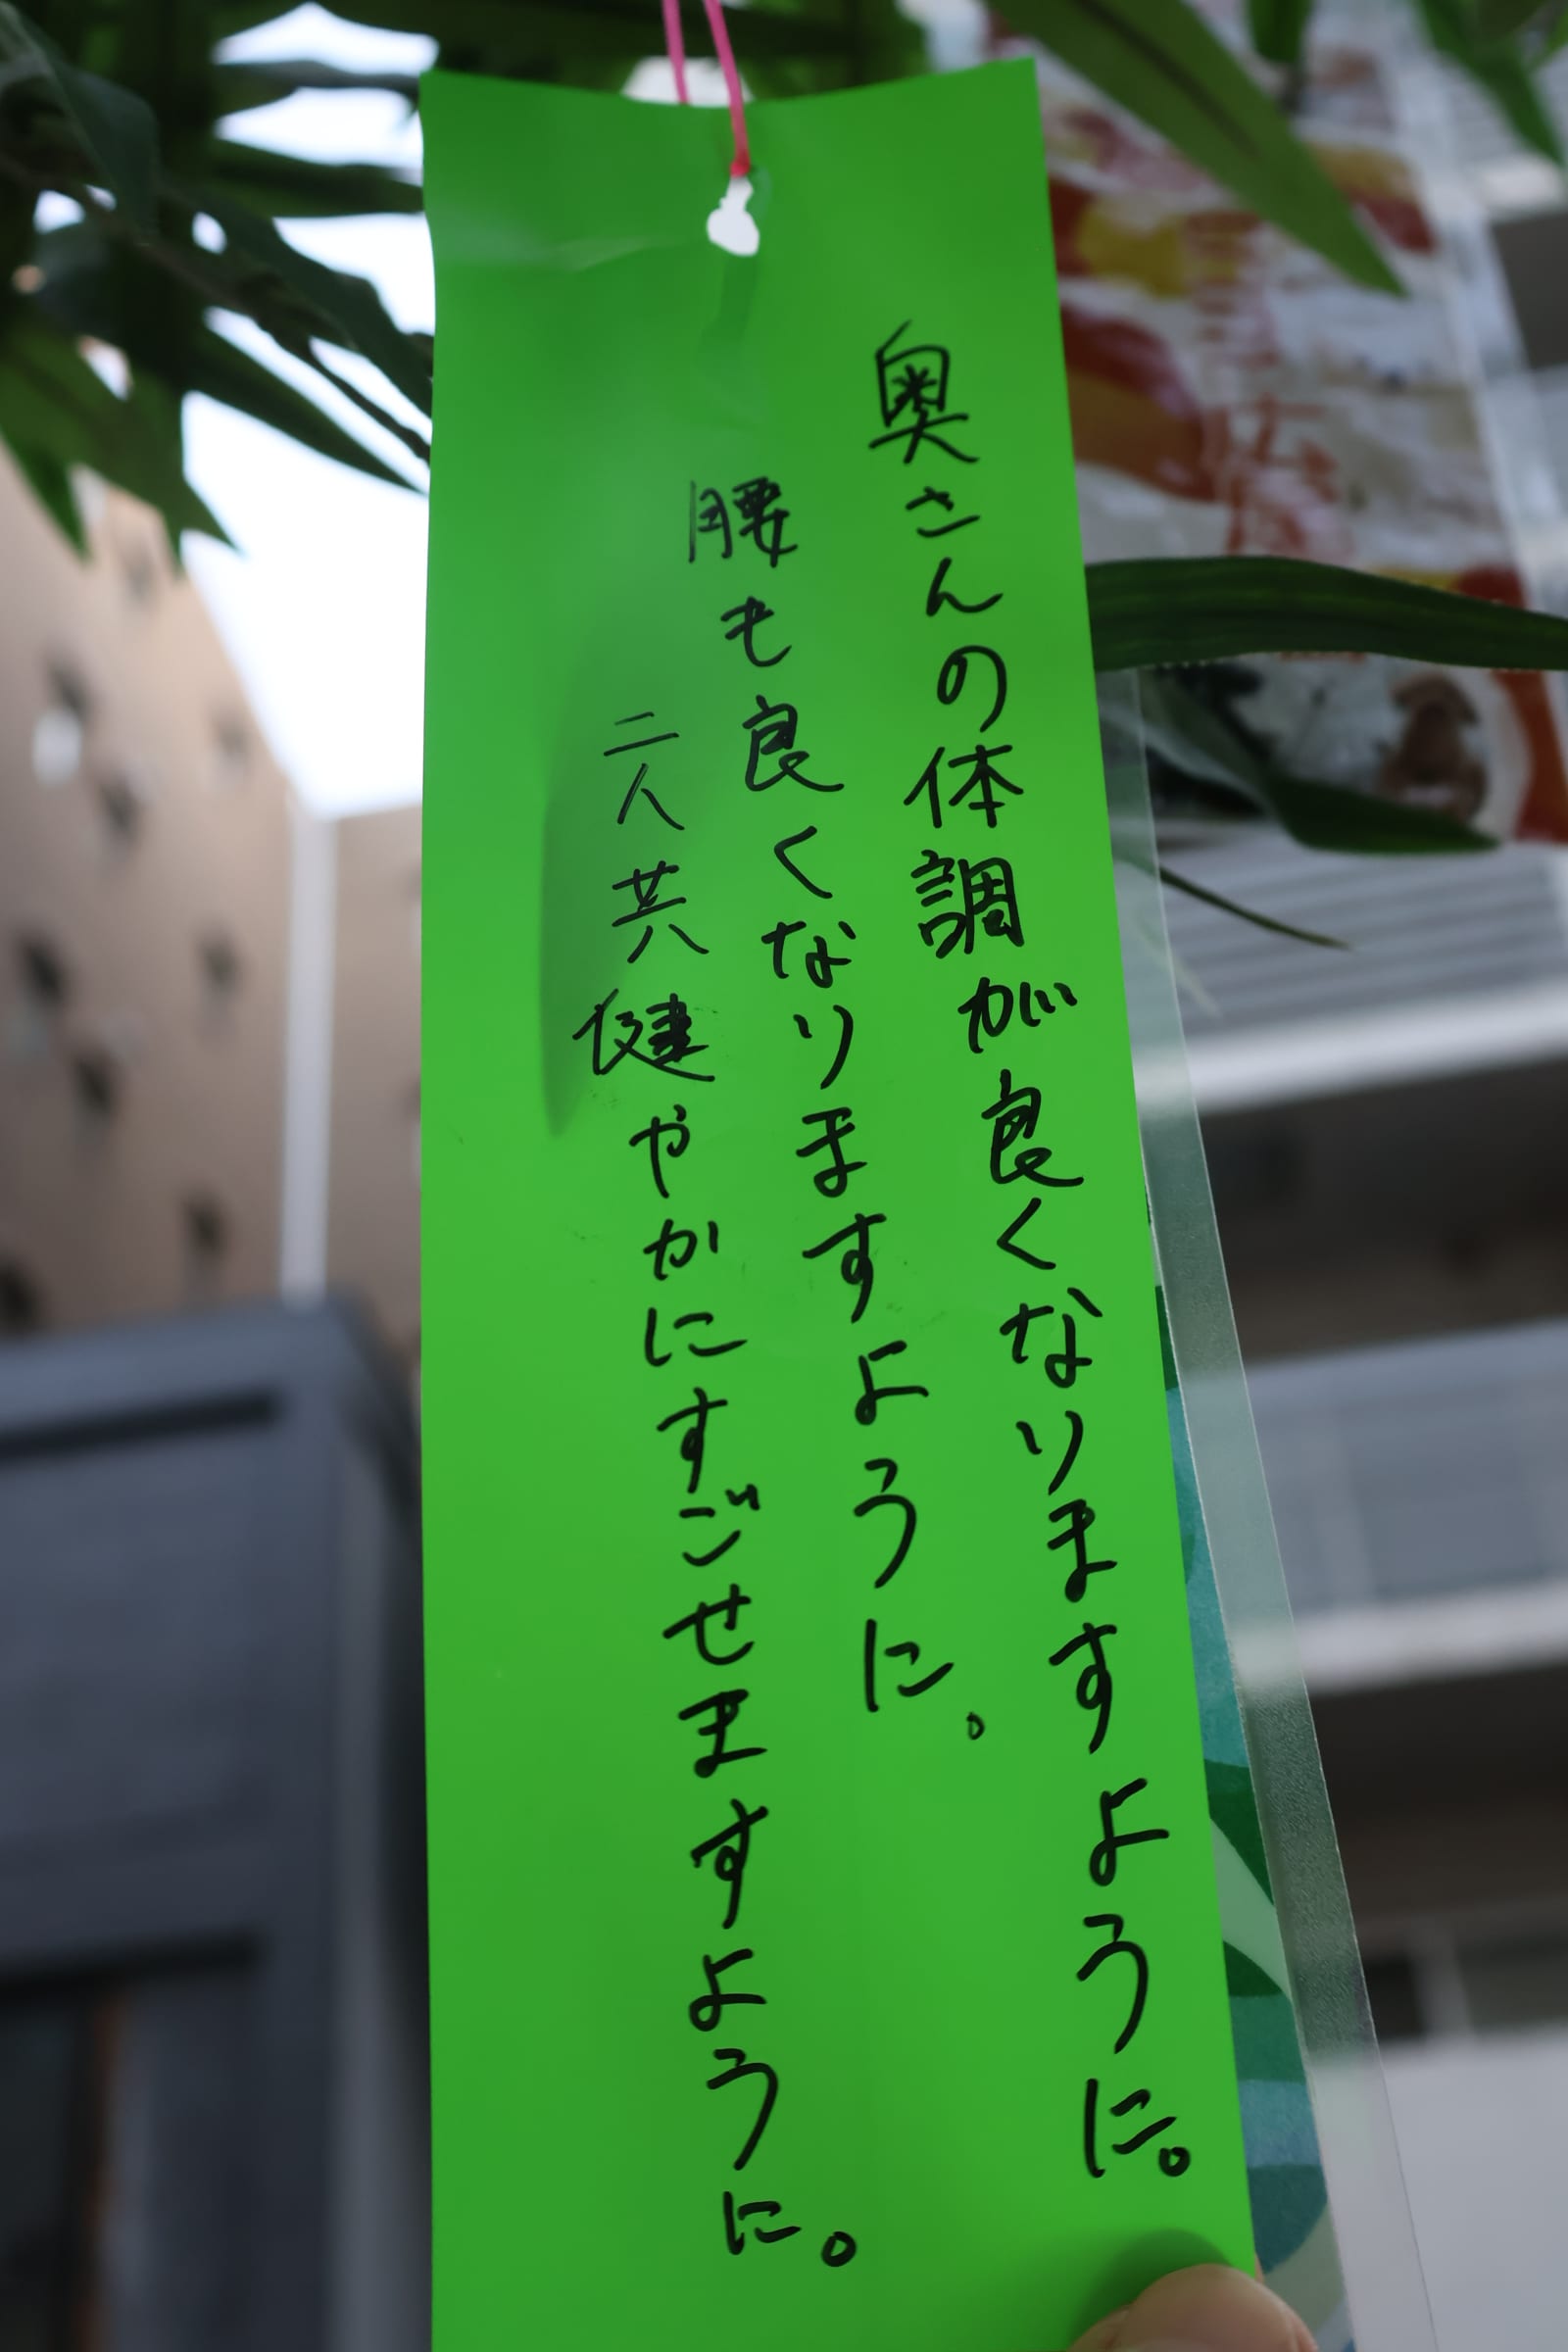 奥さんの体調が良くなりますように。
腰も良くなりますように。
二人共健やかにすごせますように。